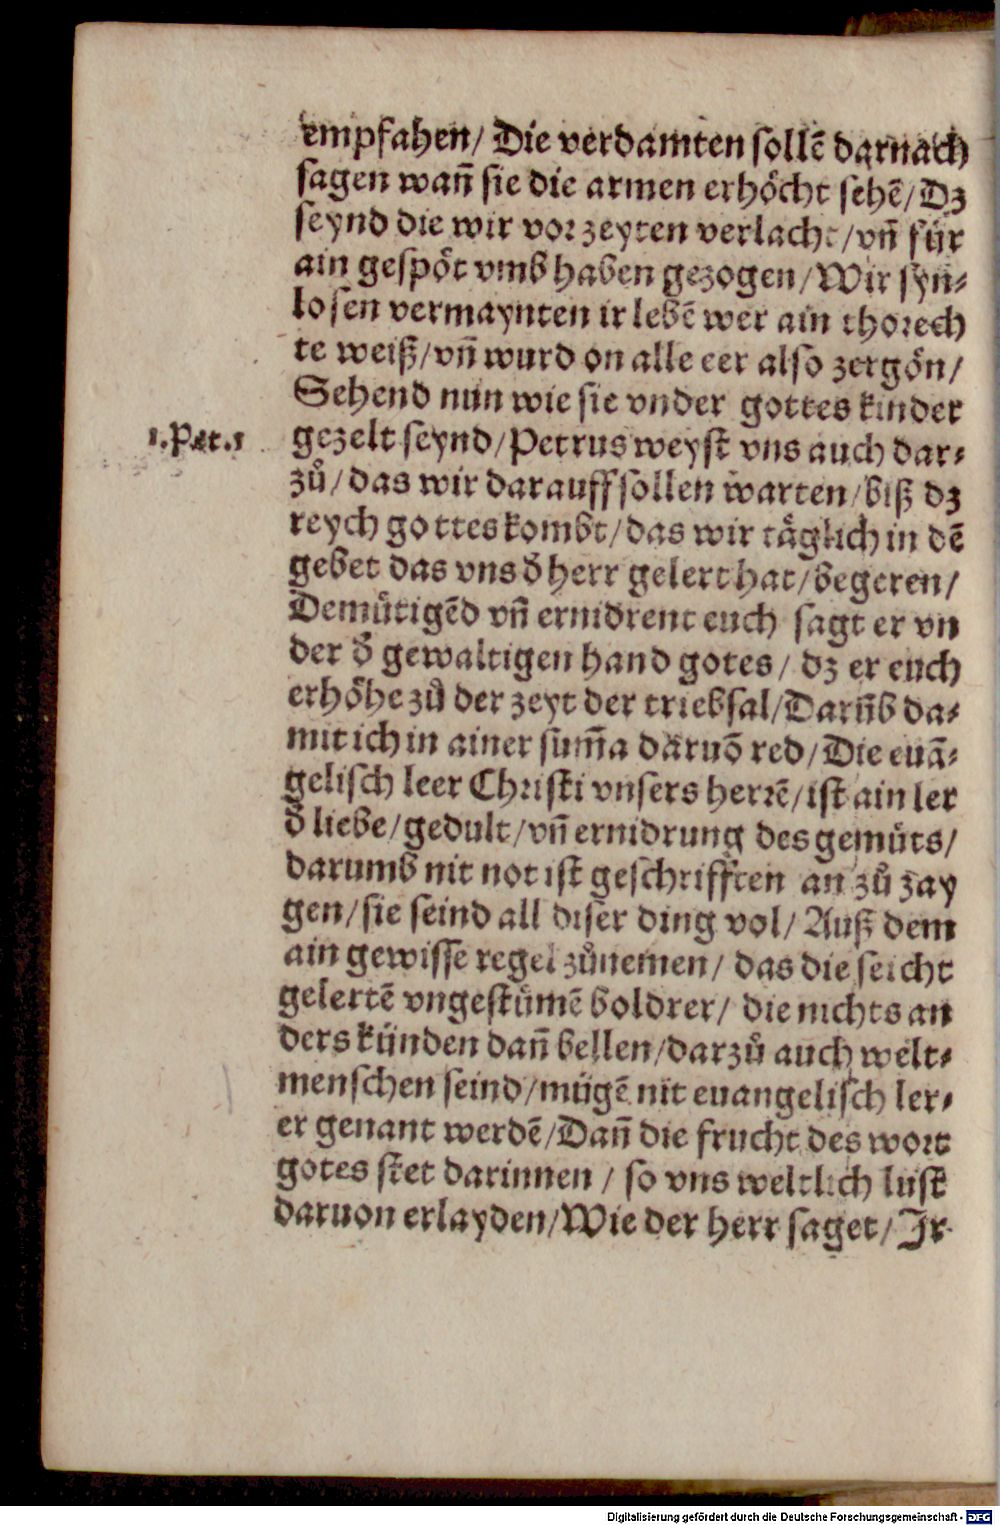 empfahen/ Die verdamten sollē darnach
sagen wañ sie die armen erhöcht sehē/ Dz
seynd die wir vor zeyten verlacht/ vñ für
ain gespöt vmb haben gezogen/ Wir syn⸗
losen vermaynten ir lebē wer ain thorech
te weiß/ vñ wurd on alle eer also zergön/
Sehend nun wie sie vnder gottes kinder
1.Pet.1
gezelt seynd/ Petrus weyst vns auch dar⸗
zů/ das wir darauff sollen warten/ biß dz
reych gottes kombt/ das wir täglich in dē
gebet das vns d̄ herr gelert hat/ begeren/
Demütigēd vñ ernidrent euch sagt er vn
der d̄ gewaltigen hand gotes/ dz er euch
erhöhe zů der zeyt der triebsal/ Darūb da⸗
mit ich in ainer sum̄a daruō red/ Die euā⸗
gelisch leer Christi vnsers herrē/ ist ain ler
d̄ liebe/ gedult/ vñ ernidrung des gemüts/
darumb nit not ist geschrifften an zů zay
gen/ sie seind all diser ding vol/ Auß dem
ain gewisse regel zůnemen/ das die seicht
gelertē vngestümē boldrer/ die nichts an
ders künden dañ bellen/ darzů auch welt⸗
menschen seind/ mügē nit euangelisch ler⸗
er genant werdē/ Dañ die frucht des wort
gotes stet darinnen / so vns weltlich lust
daruon erlayden/ Wie der herr saget/ Jr
Digitalisierung gefördert durch die Deutsche Forschungsgemeinschaft - DFG